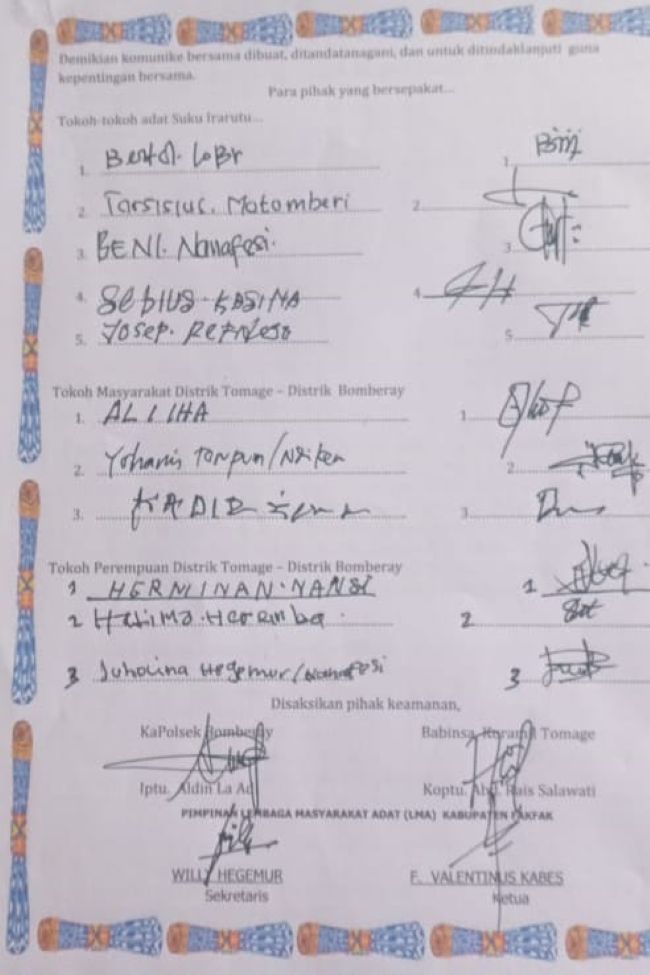 Demikian komunike bersama dibuat, ditandatanagani, dan untuk ditindaklanjuti guna
kepentingan bersama.
Para pihak yang bersepakat...
Tokoh-tokoh adat Suku Irarutu...
1. 1.
2. Tarsisius. Matomberi 2.
3. BENI. Nanafesi. 3.
4. SEBIUS. KASINA 4.
5. Yosep. 5.
Tokoh Masyarakat Distrik Tomage – Distrik Bomberay
1. ALI IHA 1.
2. Yohanis 2.
3. KADIR 3.
Tokoh Perempuan Distrik Tomage – Distrik Bomberay
1 HERMINAN. NANSI 1
2 Halima. 2
3 Juholina Hegemur/ 3
Disaksikan pihak keamanan,
KaPolsek Bomberay Babinsa, Koramil Tomage
Iptu. Aldin La Ad Koptu. Abd. Rais Salawati
PIMPINAN LEMBAGA MASYARAKAT ADAT (LMA) KABUPATEN FAKFAK
WILLY HEGEMUR F. VALENTINUS KABES
Sekretaris Ketua